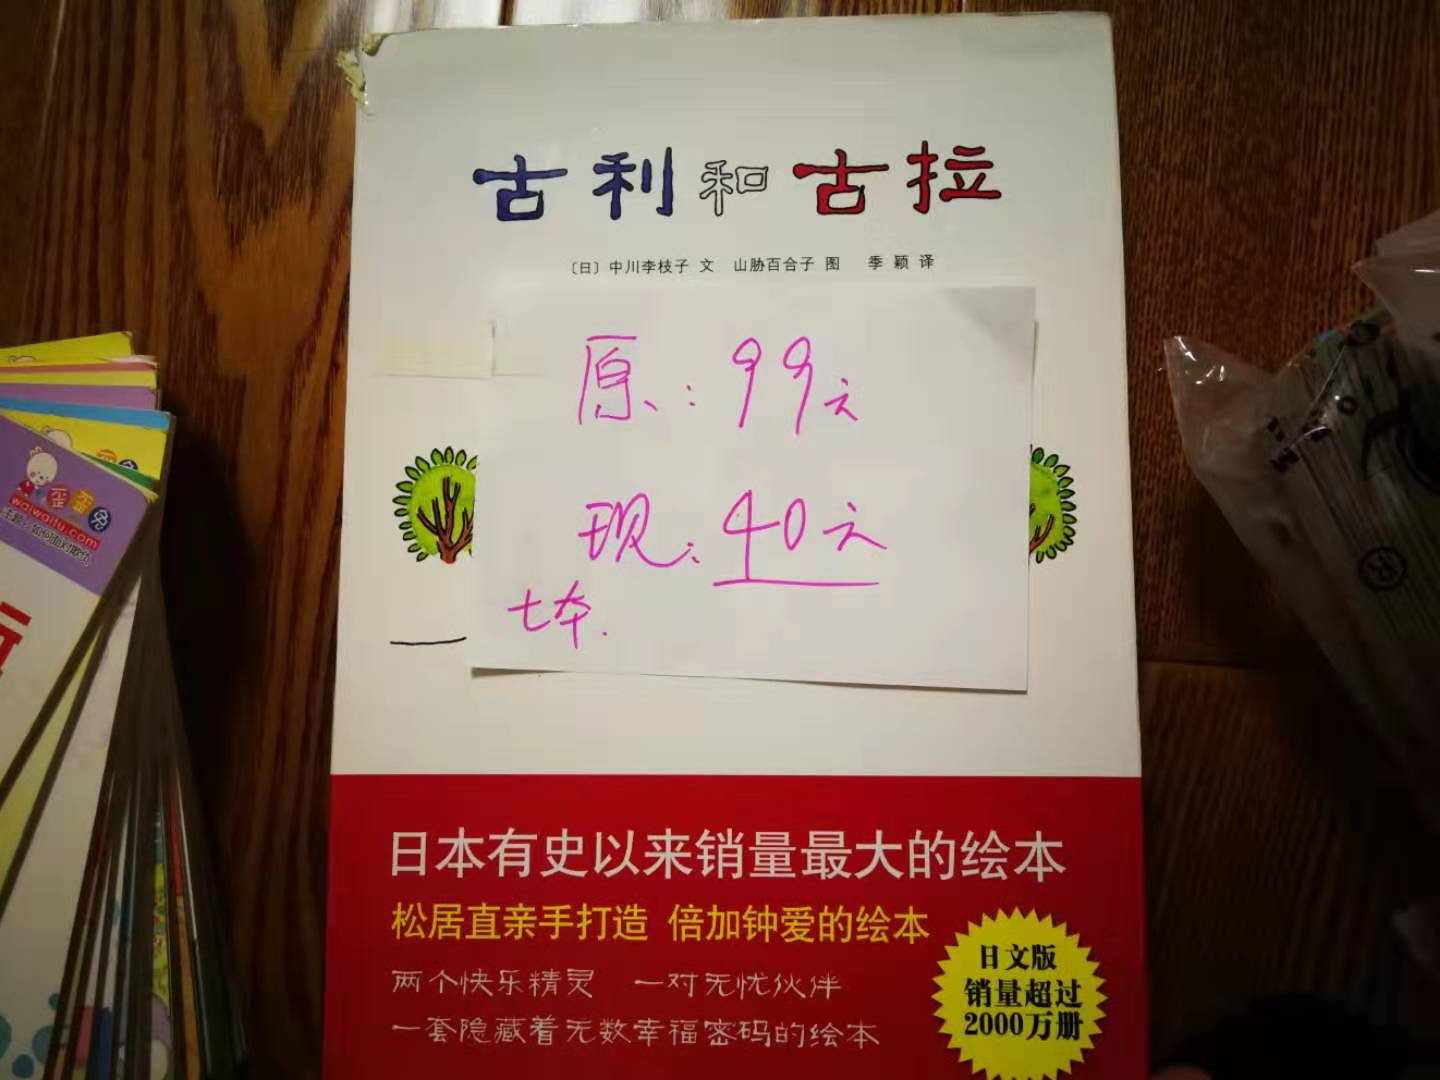 古利和古拉
〔日〕中川李枝子 文 山胁百合子 图 季颖 译
原：99元
现：40元
七本.
日本有史以来销量最大的绘本
松居直亲手打造 倍加钟爱的绘本
两个快乐精灵 一对无忧伙伴
一套隐藏着无数幸福密码的绘本
日文版
销量超过
2000万册
歪歪兔
waiwaitu.com